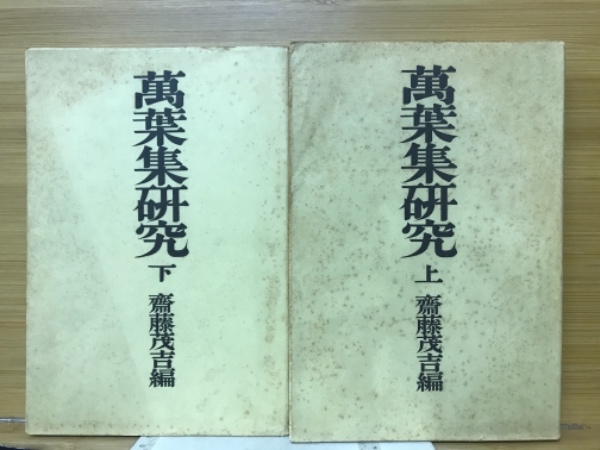 萬葉集研究
上
齋藤茂吉編
萬葉集研究
下
齋藤茂吉編